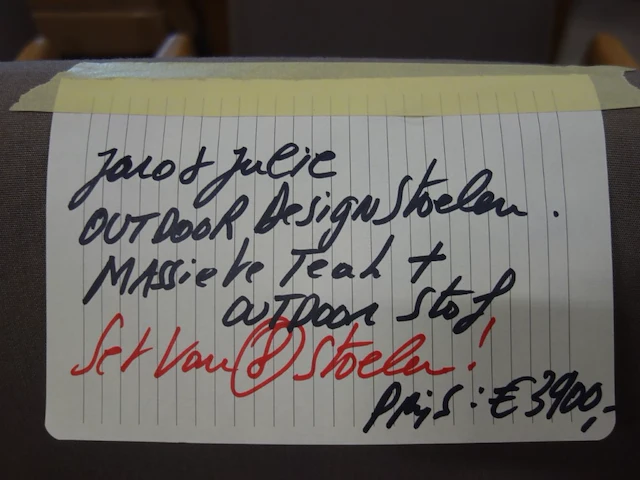 Jaro & Julie
OUTDOOR DesigN Stoelen.
MAssieve Teak +
OUTDOOR Stof
Set Van (8) Stoelen!
Prijs: € 3900,-